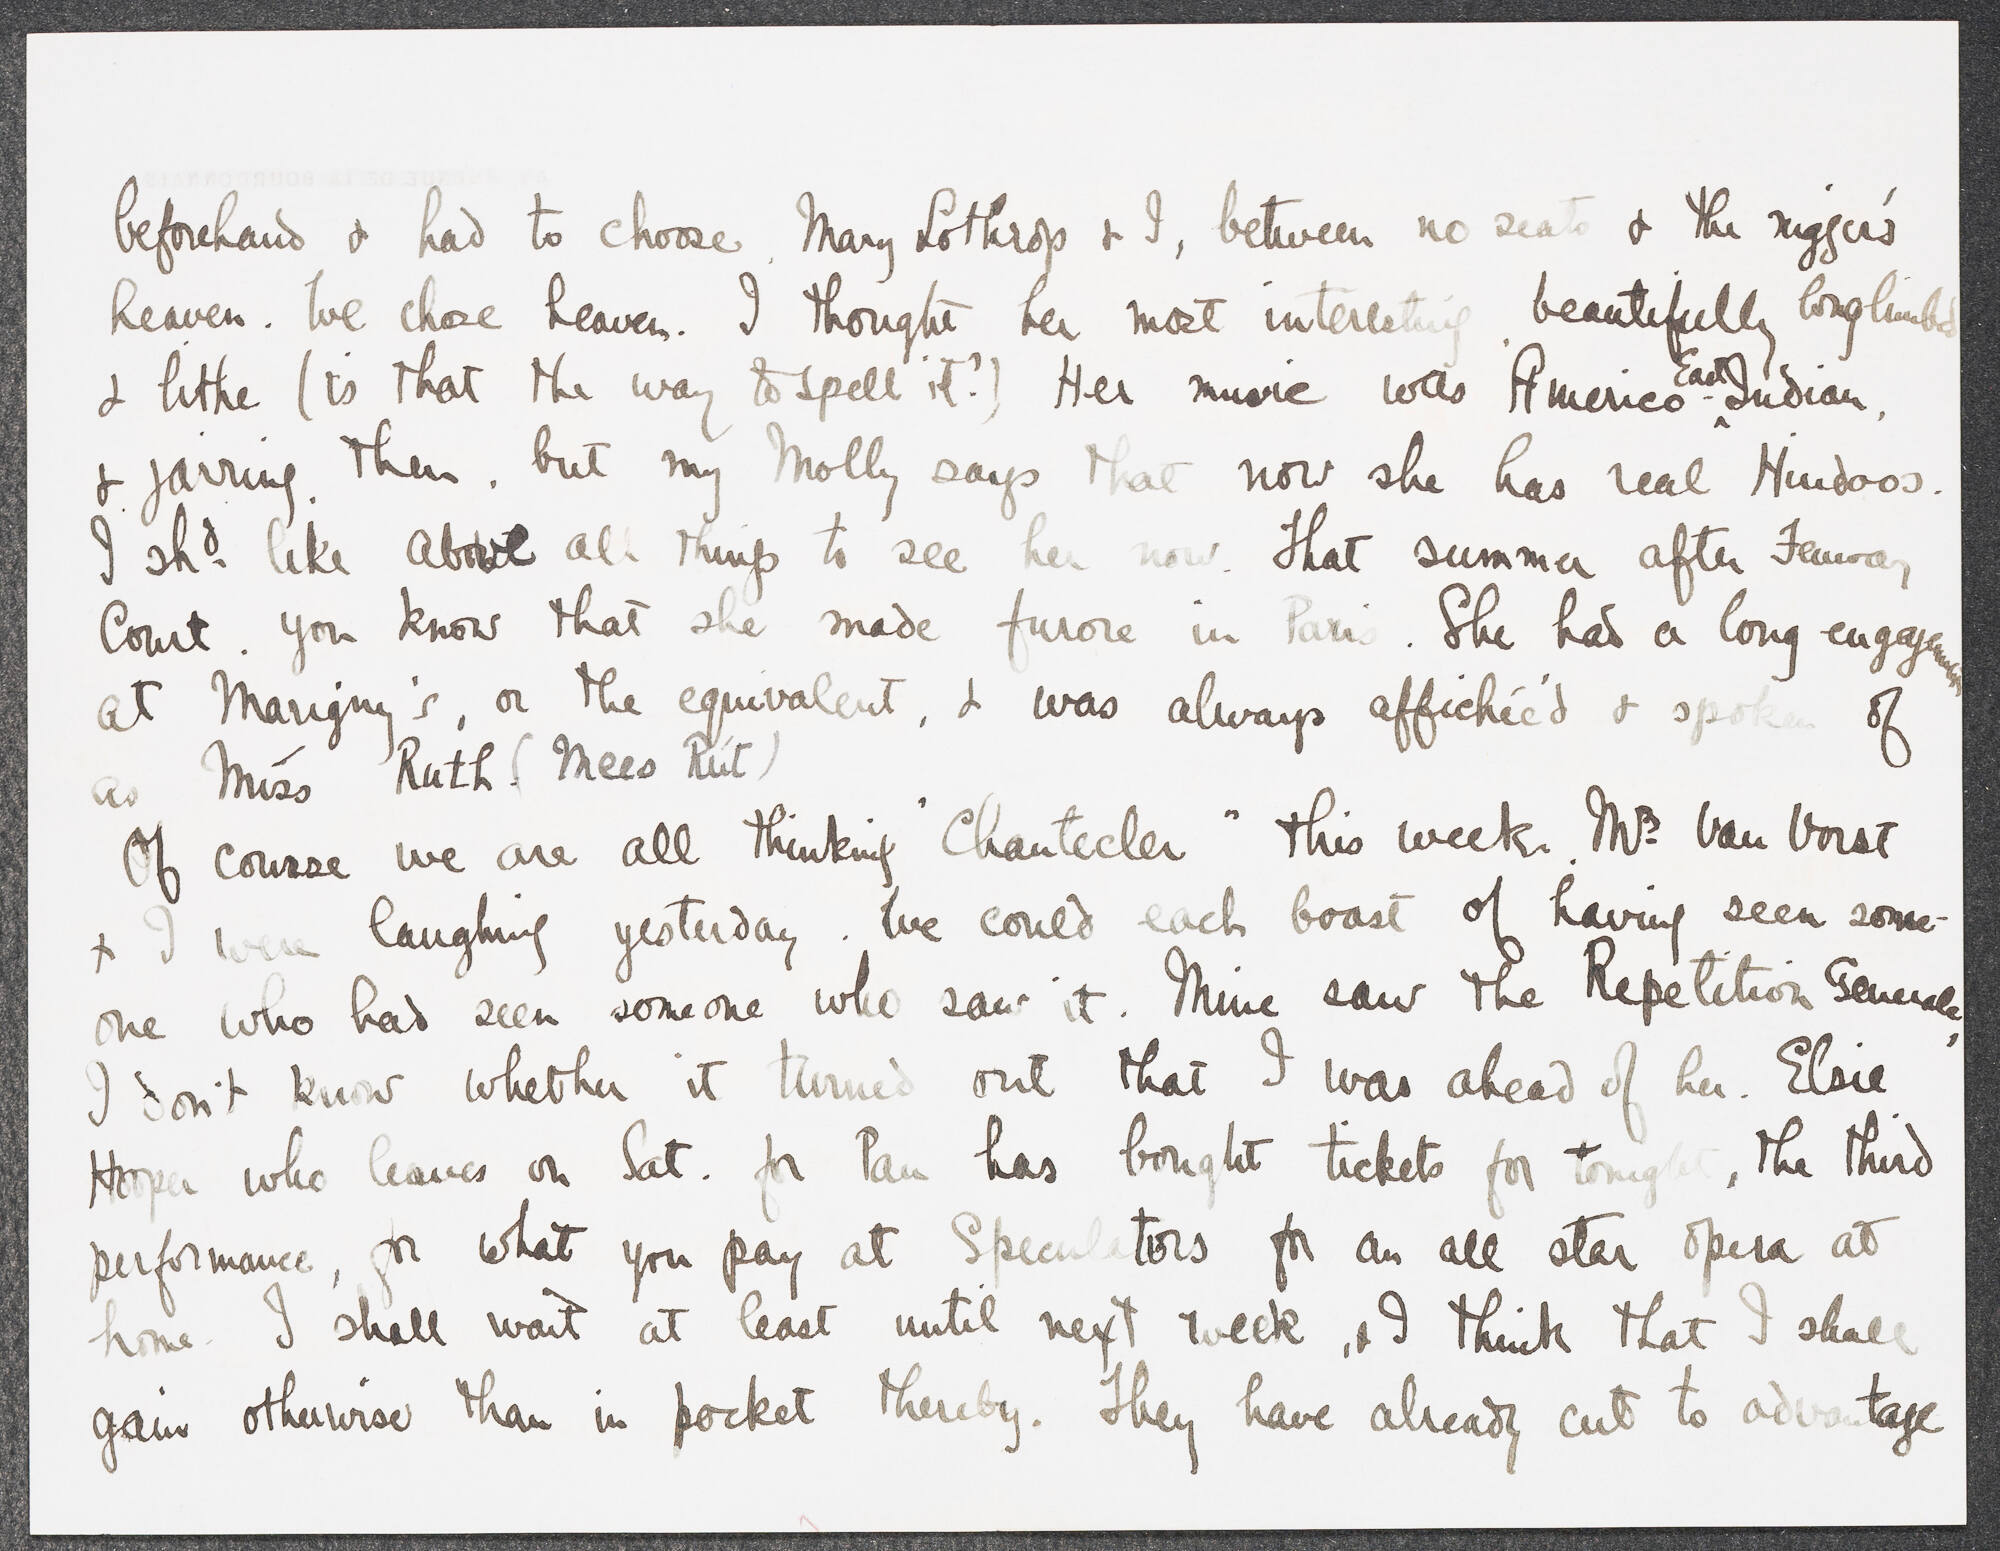 beforehand & had to choose, Mary Lothrop & I, between no seats & the nigger's
heaven. We chose heaven. I thought her most interesting, beautifully longlimbed
& lithe (is that the way to spell it?) Her music was Americo-East Indian,
& jarring, then, but my Molly says that now she has real Hindoos.
I shd. like above all things to see her now. That summer after Fenway
Court, you know that she made furore in Paris. She had a long engagement
at Marigny's, or the equivalent, & was always affichée'd & spoken of
as Miss Ruth. (Mees Rut)
Of course we are all thinking "Chantecler" this week. Mrs Van Vorst
& I were laughing yesterday. We could each boast of having seen some-
one who had seen someone who saw it. Mine saw the Repetition Generale,
I don't know whether it turned out that I was ahead of her. Elsie
Hooper who leaves on Sat. for Pau has bought tickets for tonight, the third
performance, for what you pay at Speculators for an all star opera at
home. I shall wait at least until next week, & I think that I shall
gain otherwise than in pocket thereby. They have already cut to advantage